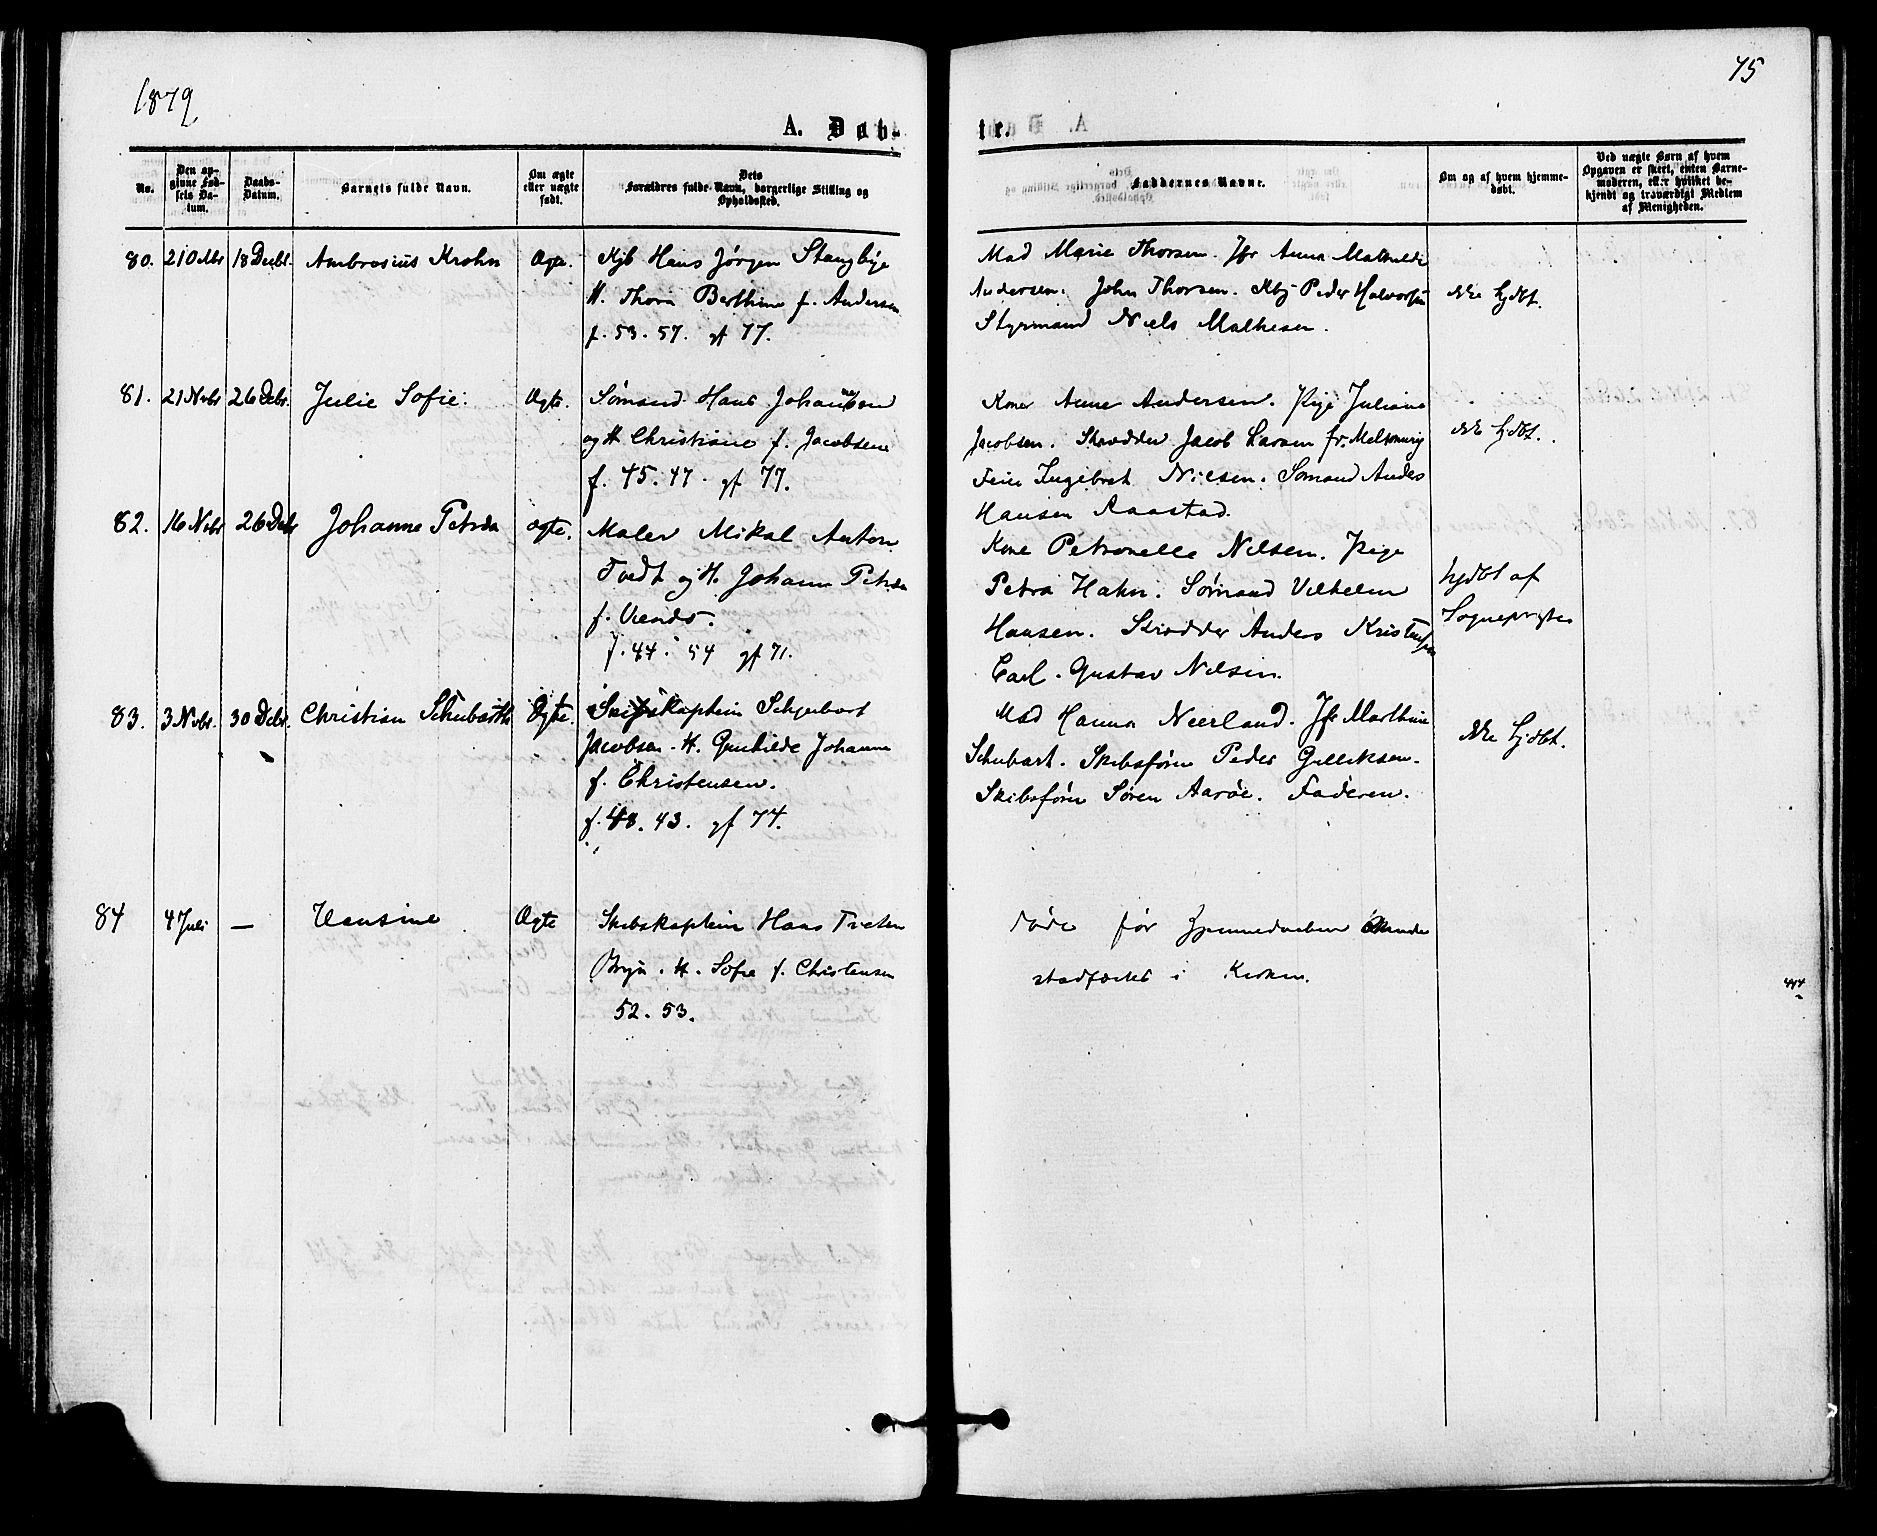 1879
75
A. Døb-
te.
No.
Den op-
givne Fød-
sels Da-
tum.
Daabs-
Datum.
Barnets fulde Navn.
Om ægte
eller uægte
født.
Dets
Forældres fulde Navn, borgerlige Stilling og
Opholdssted.
Faddernes Navne.
Om og af hvem hjemme-
døbt.
Ved uægte Børn af hvem
Opgaven er skeet, enten Barne-
moderen, eller hvilket be-
kjendt og troværdigt Medlem
af Menigheden.
80. 21 18 Debr Ambrosius Krohn Ægte. Hans Jørgen Stangbye
H. Thora Berthine f. Andersen
f. 53. 57. gf 77.
Mad Marie Thorsen. Jfr Anna Mathilde
Andersen. John Thorsen. Peder Halvorsen
Styrmand Niels Mathesen.
Ikke hjdbt.
81. 21 Nvbr 26 Debr. Julie Sofie. Ægte. Sømand Hans Johannesen
og H Christiane f. Jacobsen
f. 45. 47. gf 77.
Kone Anne Andersen. Pige Juliane
Jacobsen. Skrædder Jacob Larsen fr. Melsomvig
Feier Ingebret Nilsen. Sømand Anders
Hansen Raastad.
ikke hjdbt.
82. 16 Nvbr 26 Debr Johanne Petrea ægte. Maler Mikal Anton
Tvedt og H. Johanne Petrea
f.
f. 44. 54 gf 71.
Kone Petronelle Nilsen. Pige
Petra Hahn. Sømand Vilhelm
Hansen. Skrædder Anders Kristensen
Carl Gustav Nilsen.
hjdbt af
Sognepresten
83. 3 Nvbr. 30 Debr. Christian Schubarth Ægte. Skibskaptein Schjubart
Jacobsen. H. Gunhilde Johanne
f. Christensen.
f. 48. 43. gf 74.
Mad Hanna Neerland. Jfr Marthine
Schubart. Skibsfører Peder Gulliksen.
Skibsfører Søren Aarøe. Faderen.
Ikke hjdbt.
84 4 Juli — Hansine Ægte Skibskaptein Hans Tveten
Bryn. H. Sofie f. Christensen
52. 53.
døde før Hjemmedaaben kunde
stadfæstes i Kirken.